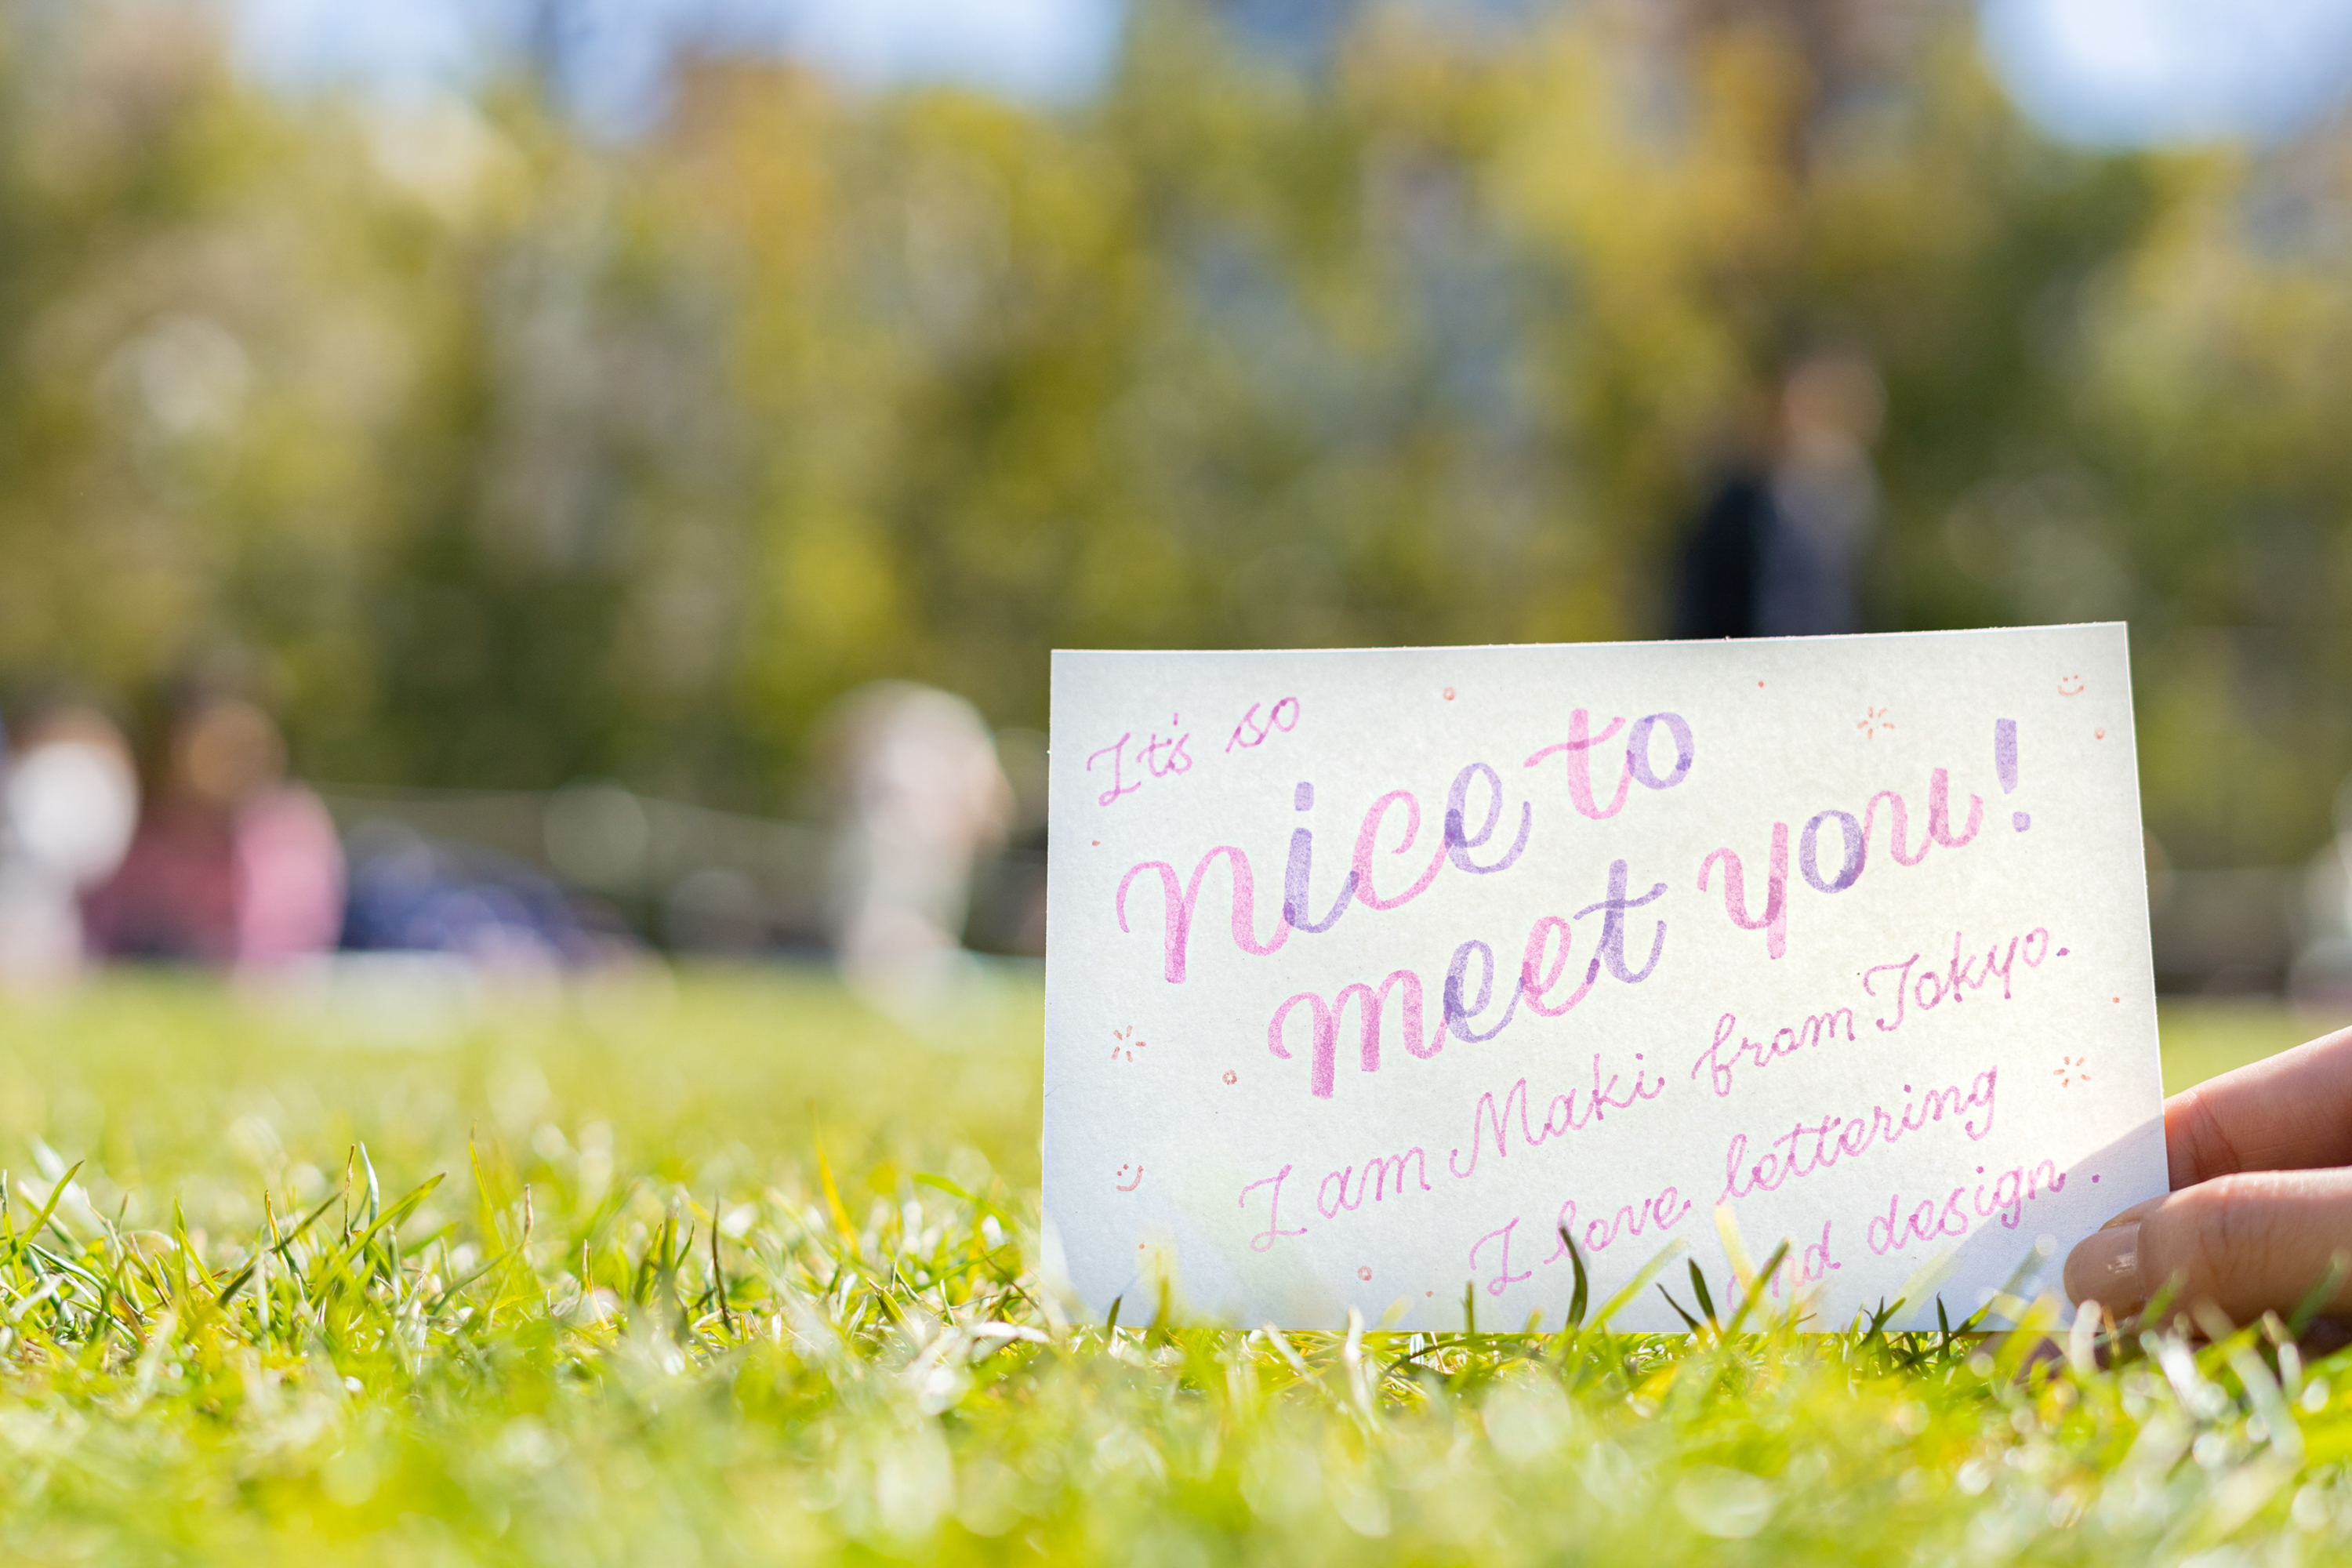 It's so
nice to
meet you!
I am Maki from Tokyo.
I love lettering
and design.